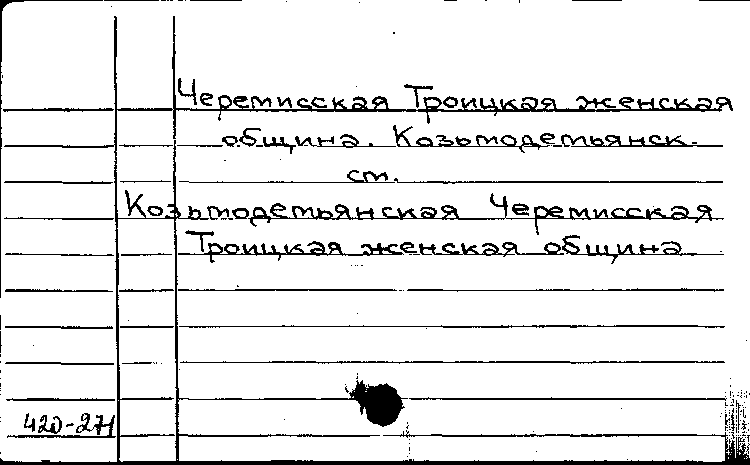 Черемисская Троицкая женская
община. Козьмодемьянск.
см.
Козьмодемьянская Черемисская
Троицкая женская община
420-271